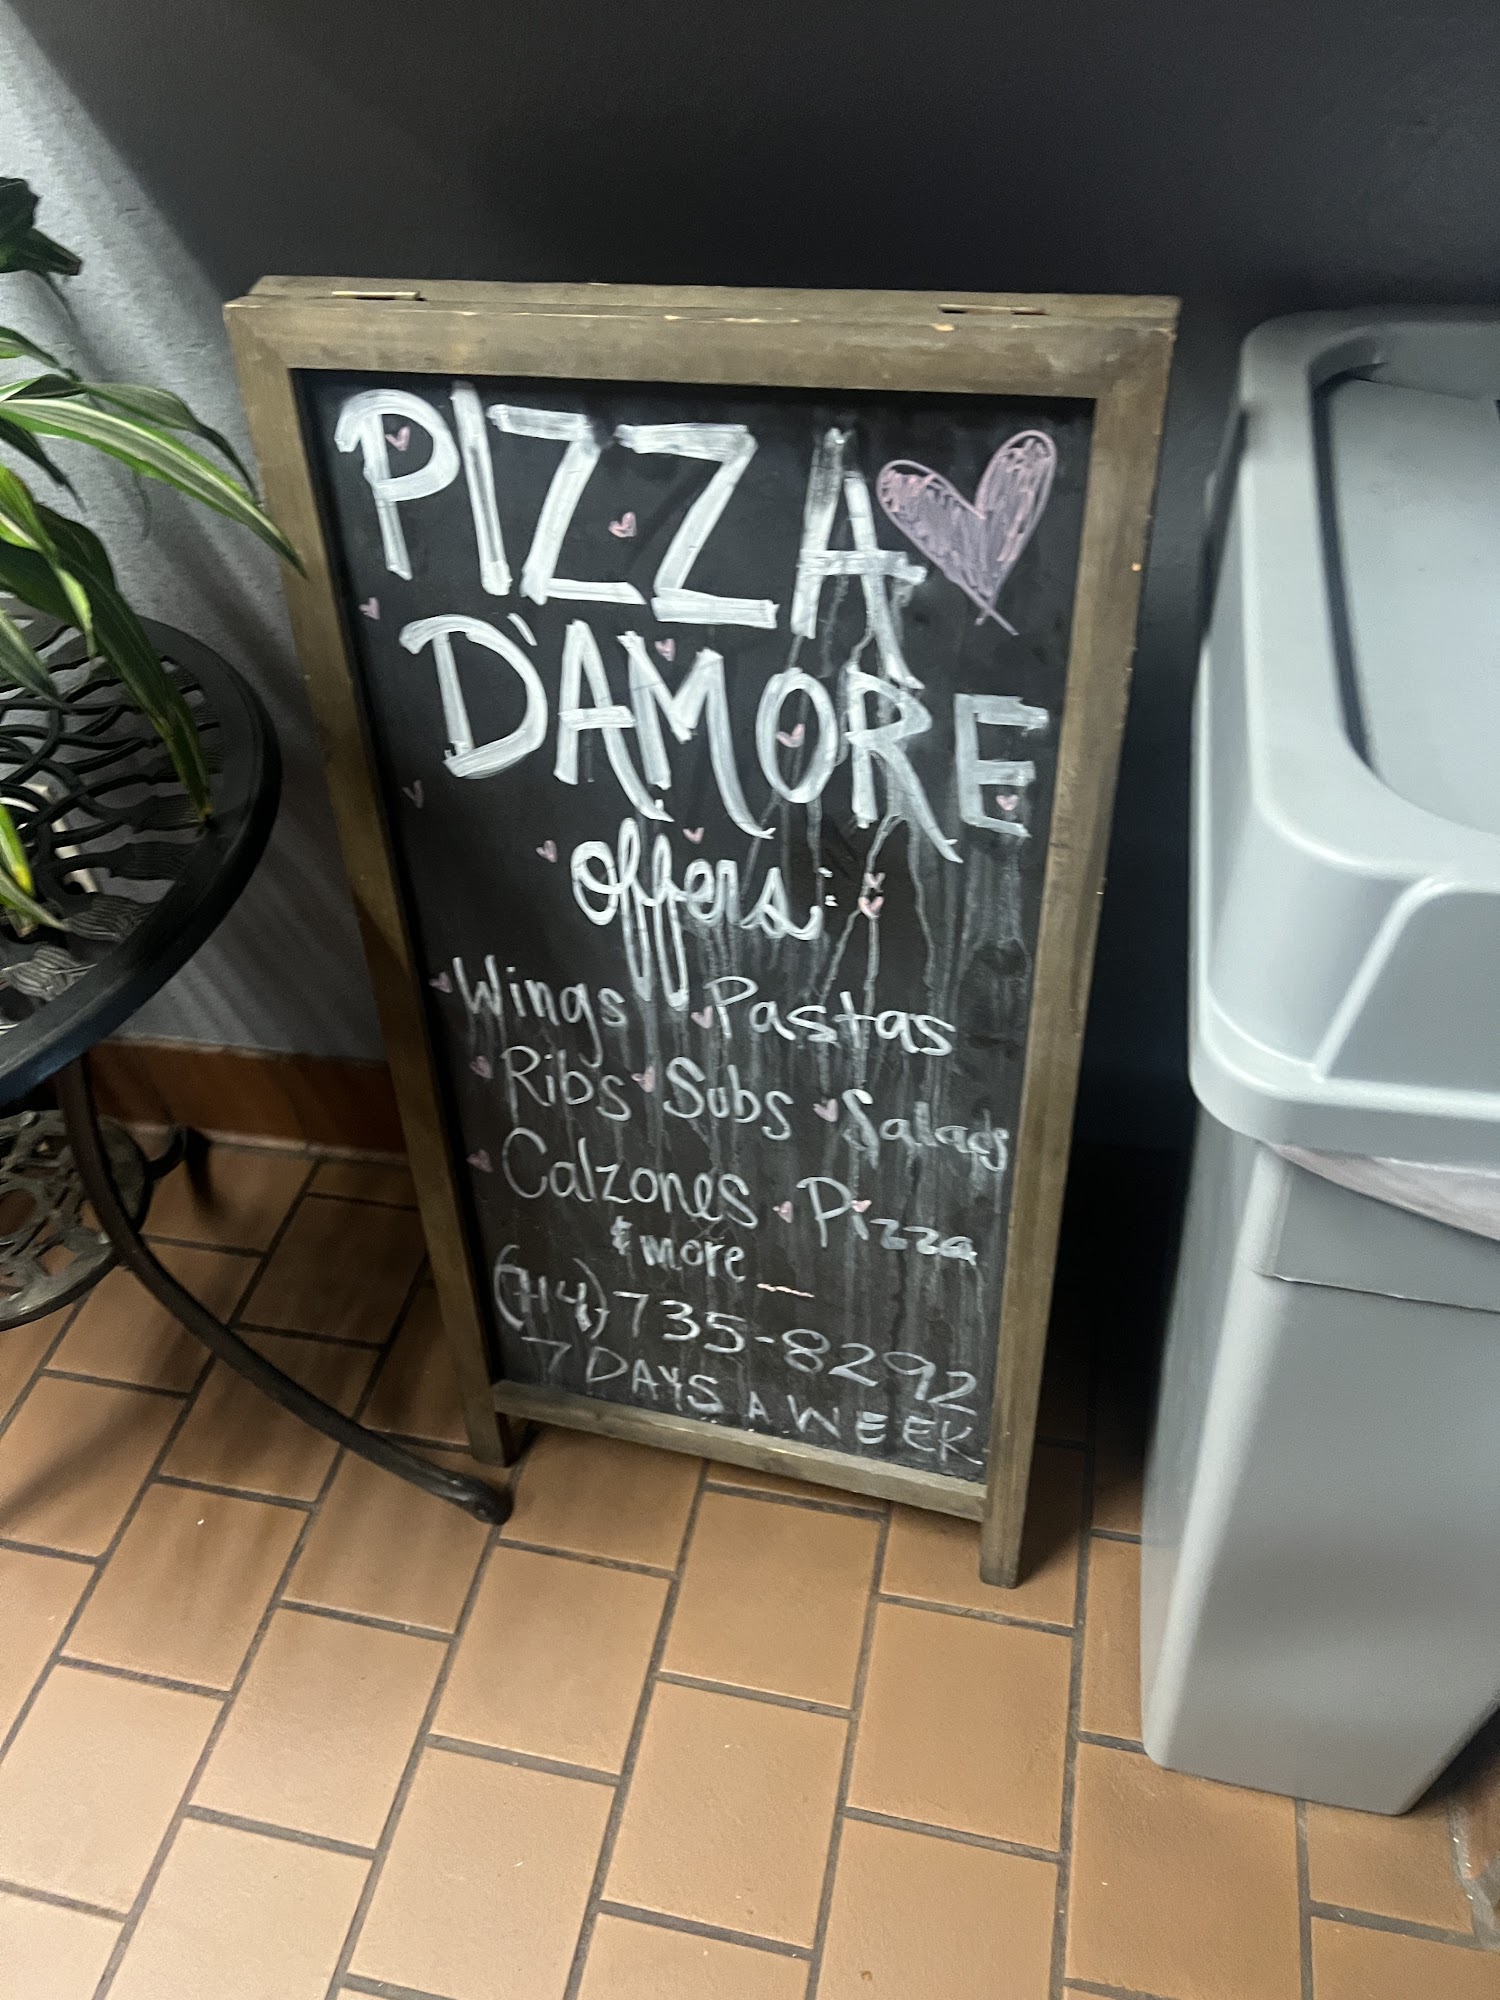 PIZZA
D'AMORE
offers:
Wings Pastas
Ribs Subs Salads
Calzones Pizza
& more
(714) 735-8292
7 DAYS A WEEK